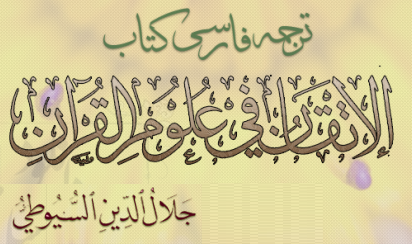 ترجمه فارسی کتاب
الإِتْقَانُ فِي عُلُومِ الْقُرْآنِ
جَلَالُ الدِّينِ السُّيُوطِيُّ